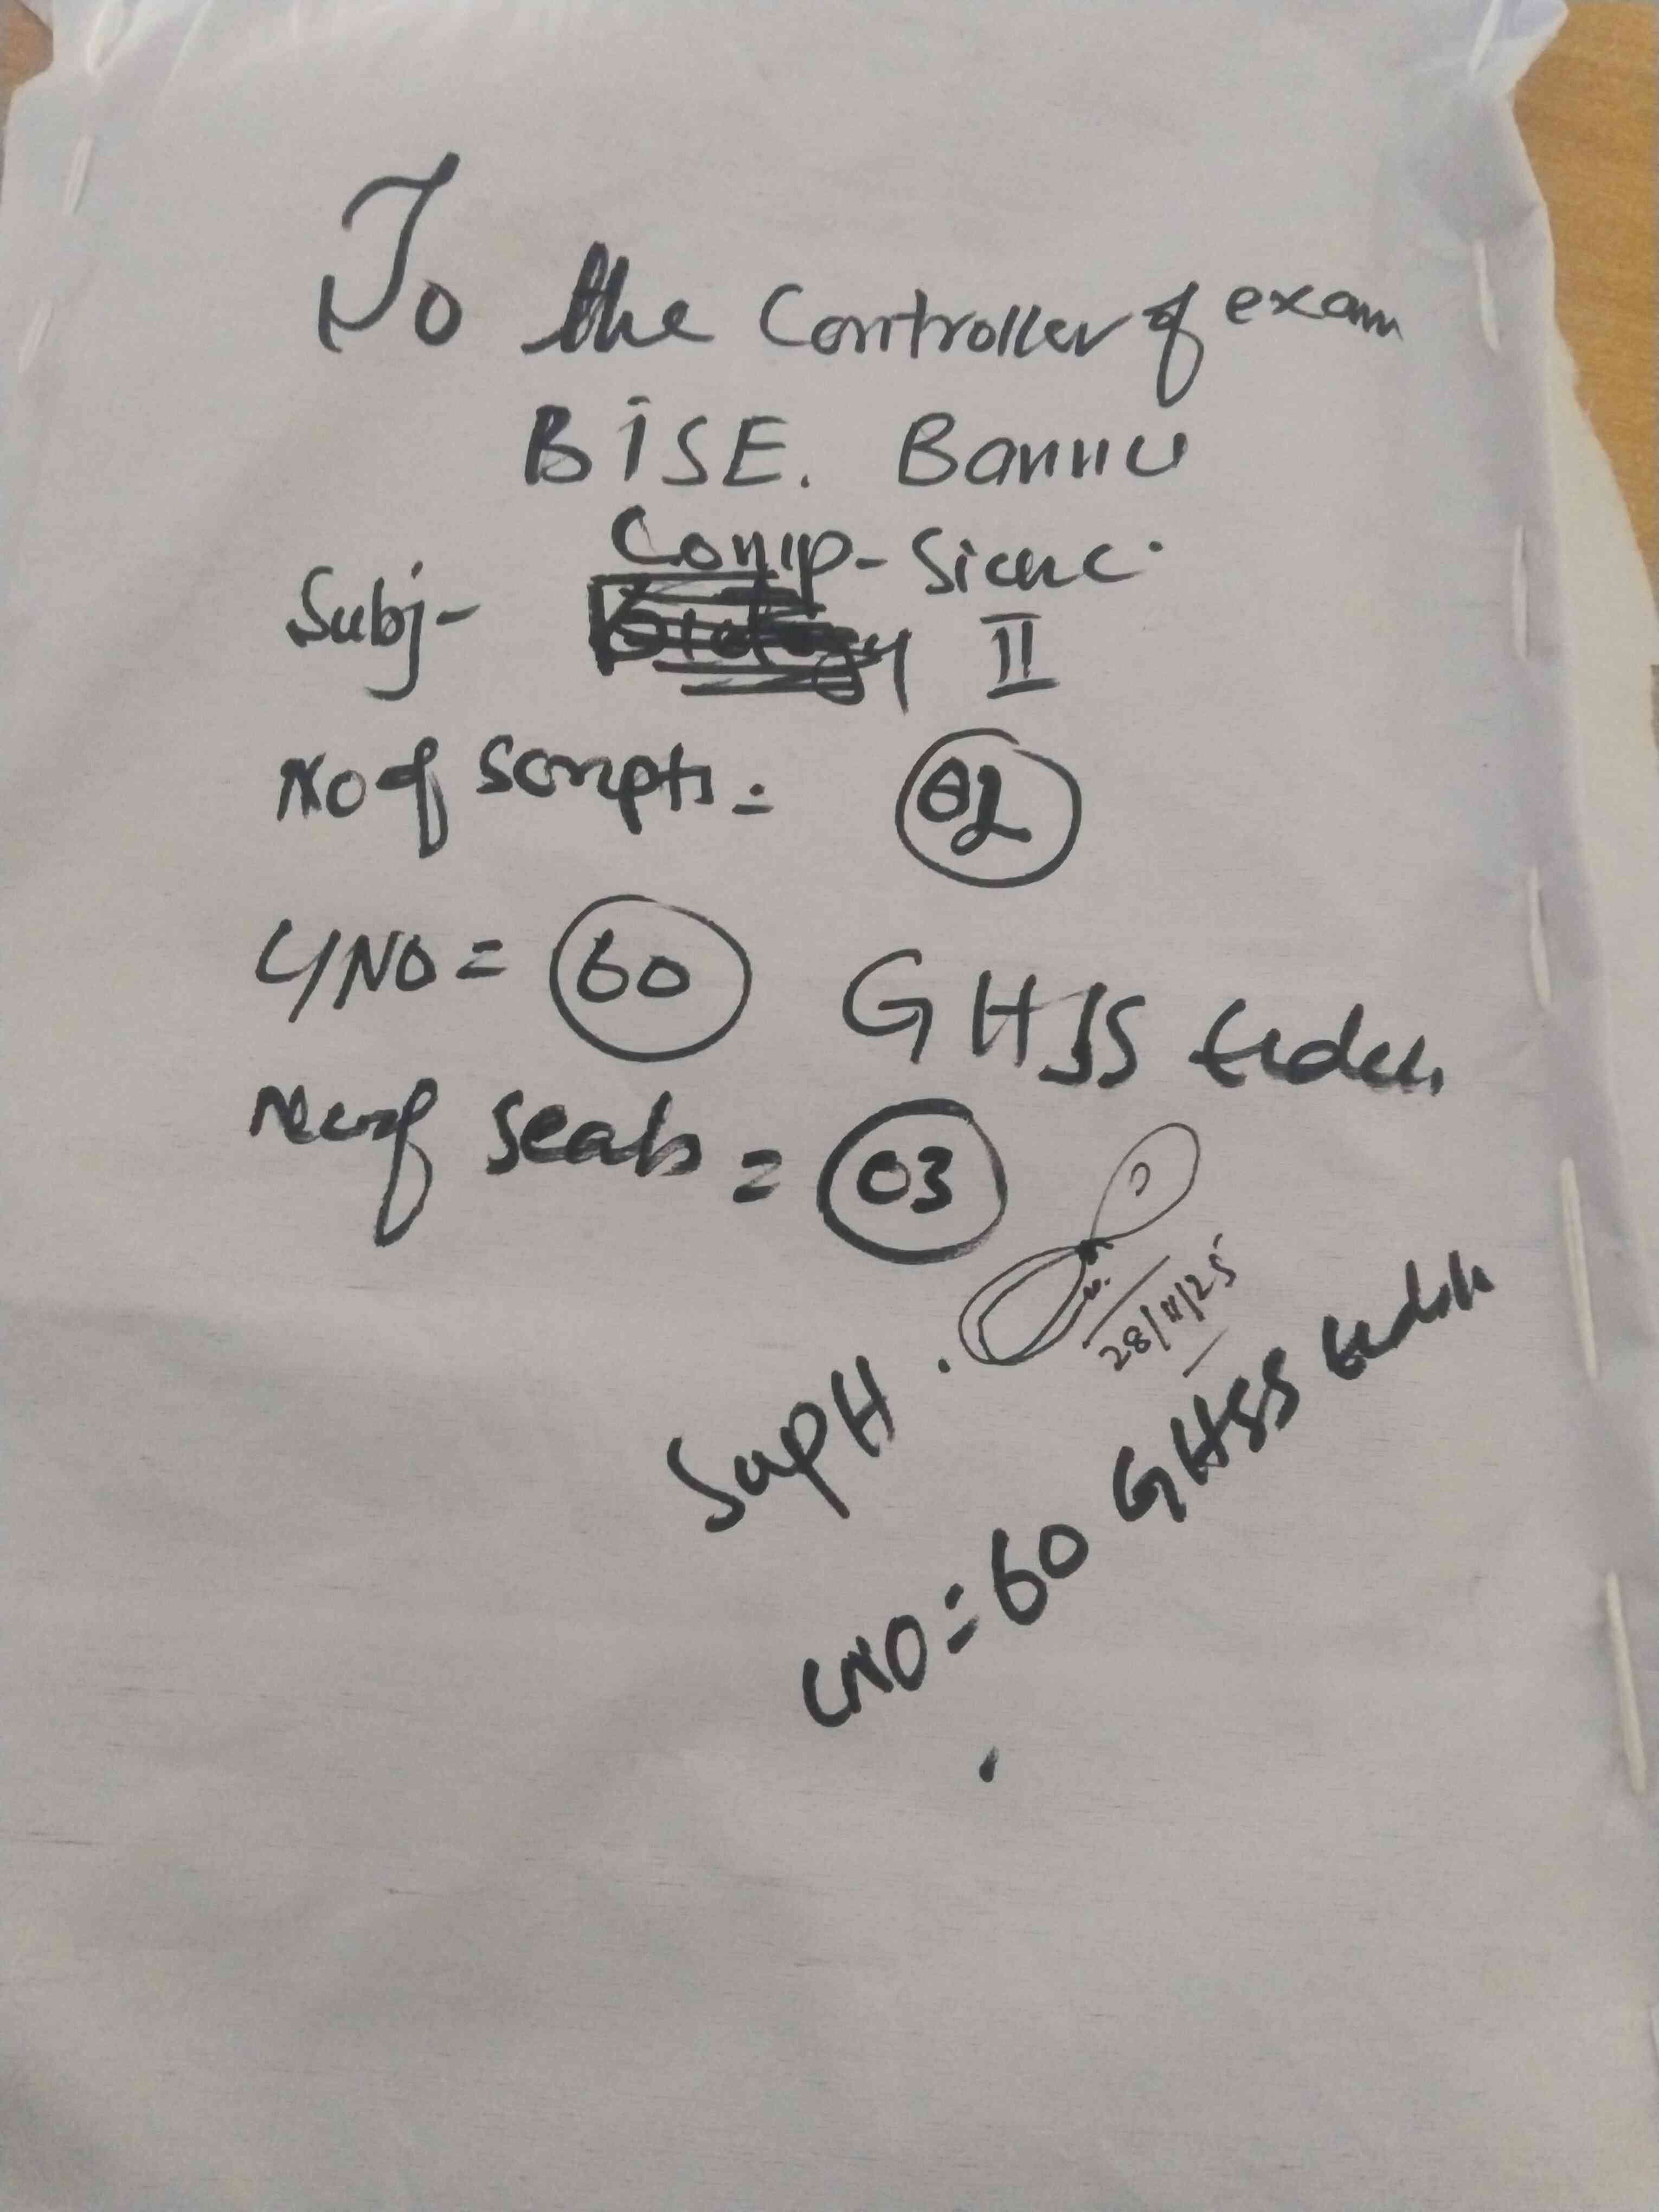 To the Controller of exam
BISE. Bannu
Comp-Sicnc.
Subj- Biology II
No of scripts = 02
C/NO = 60 GHSS
No of seals = 03
28/11/25
Supt.
C/NO = 60 GHSS